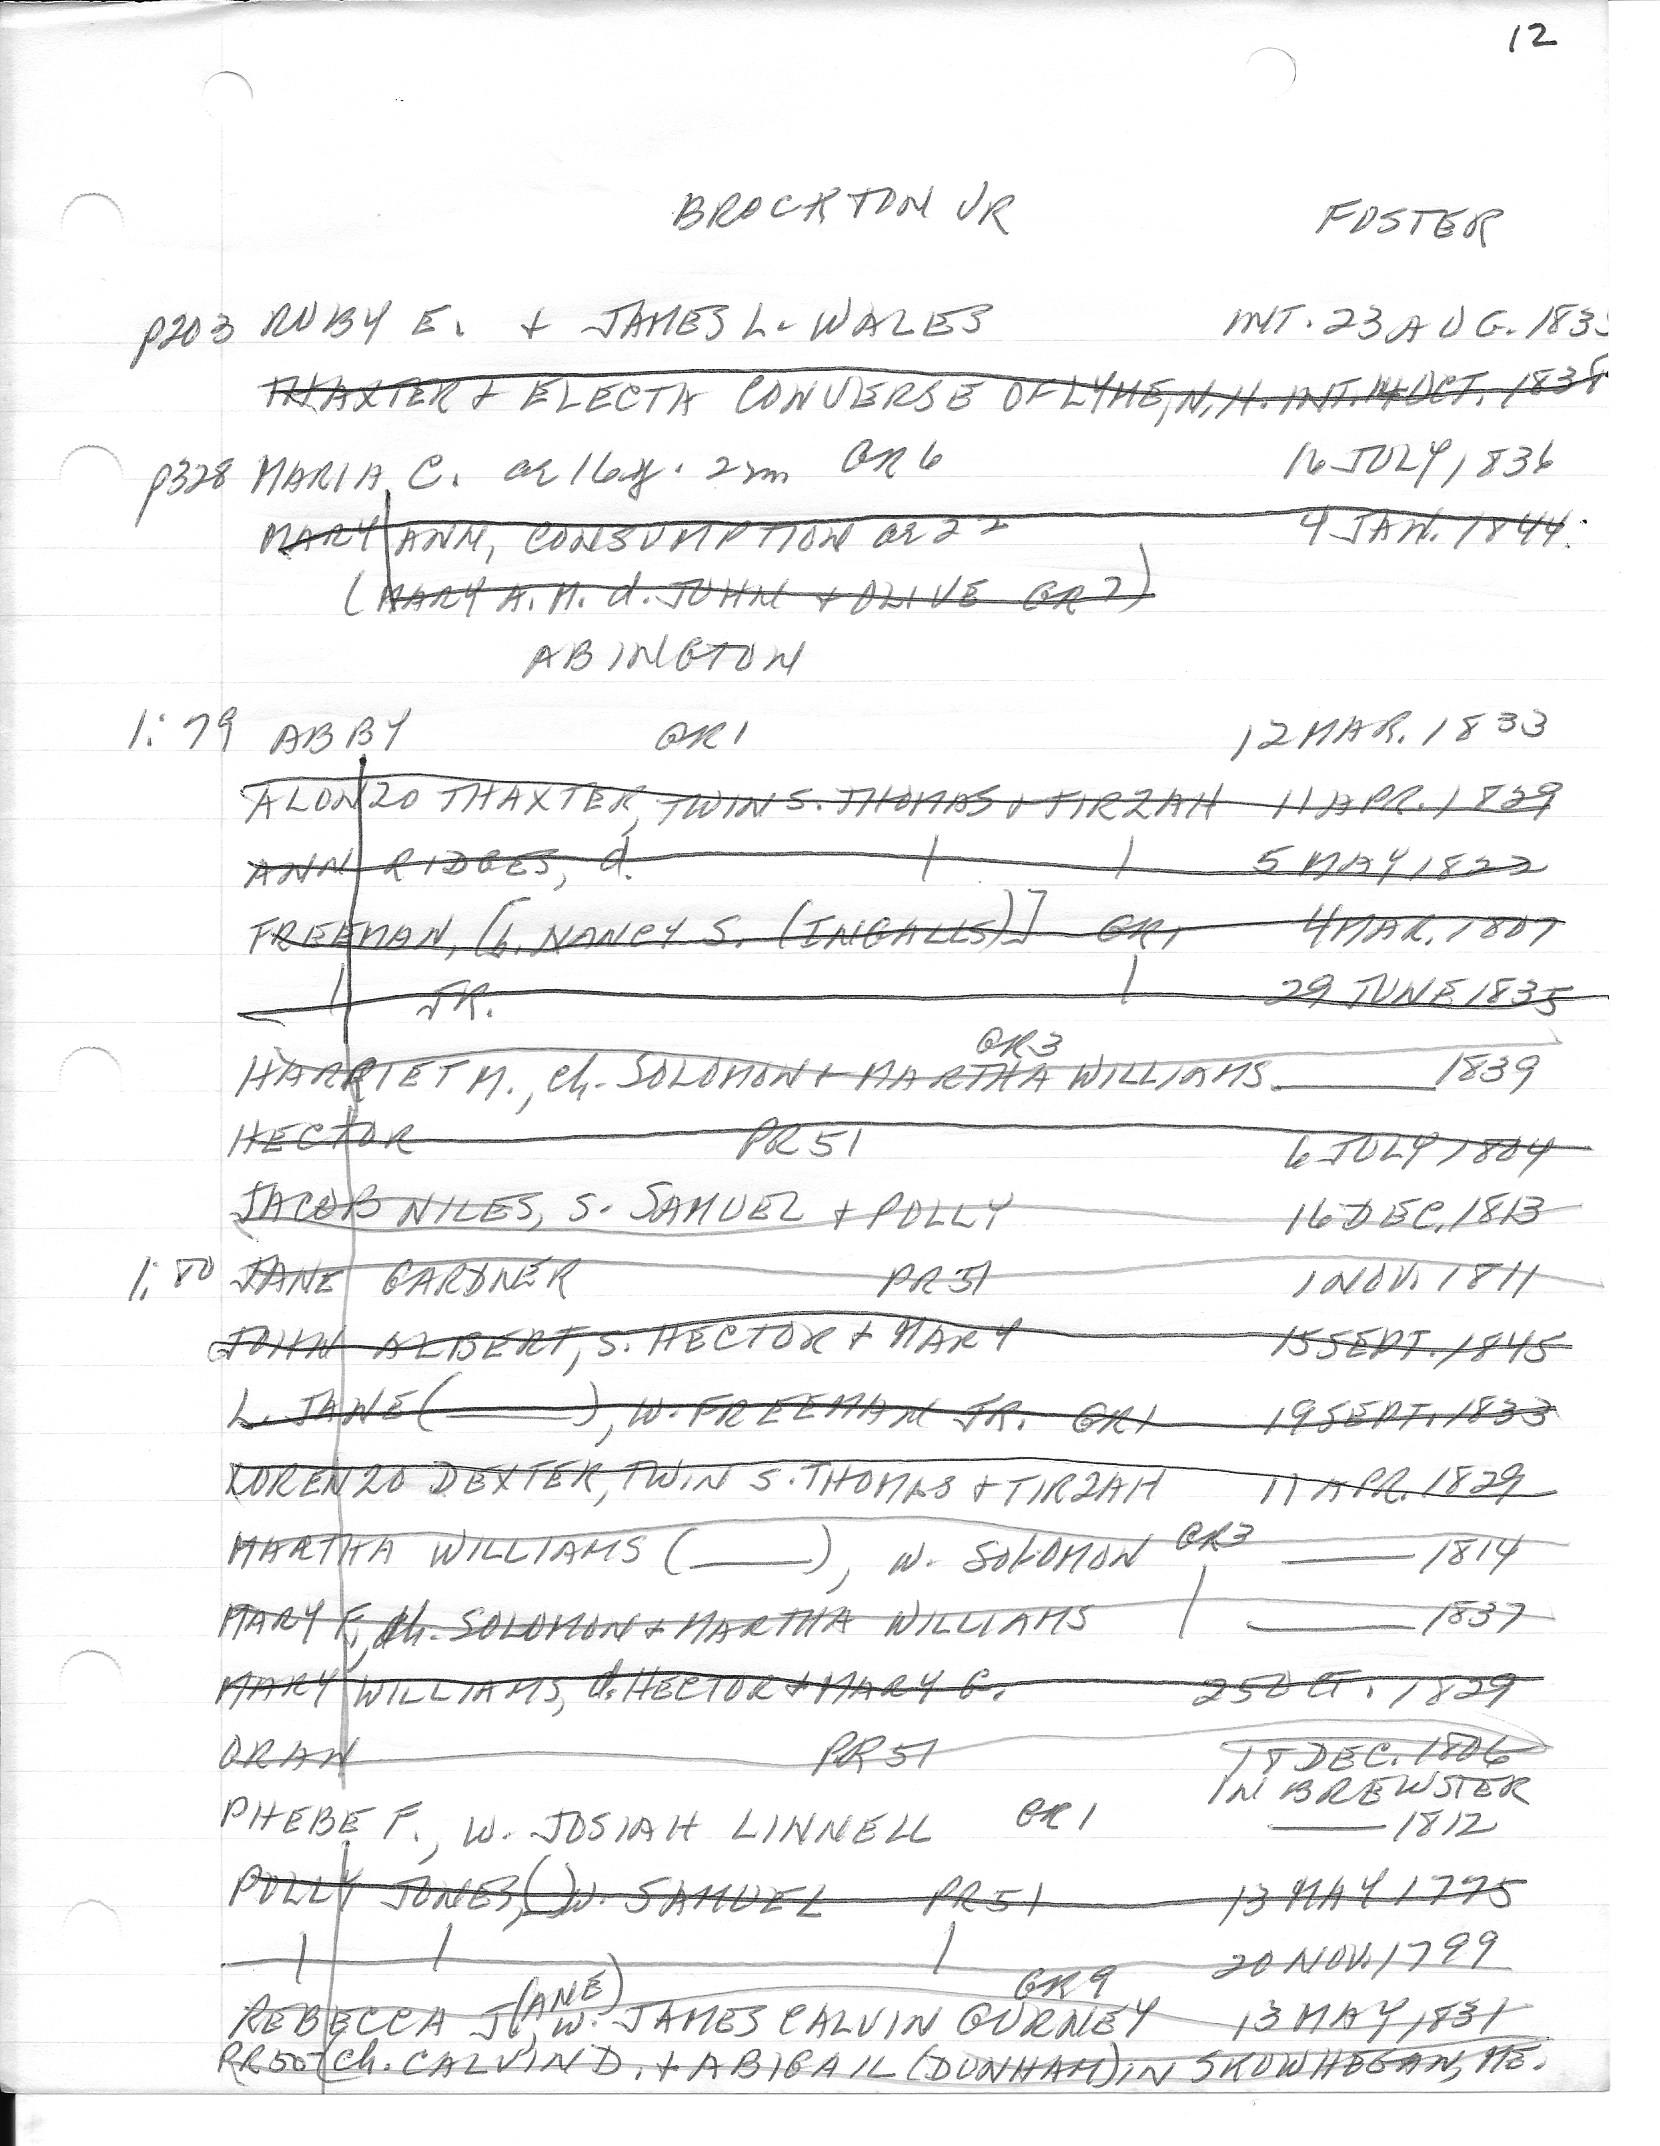 12
BROCKTON VR FOSTER
p203 RUBY E. + JAMES L. WALES INT. 23 AUG. 183
THAXTER + ELECTA CONVERSE OF LYME, N.H. INT. 14 OCT. 1838
p328 MARIA C. ae 16y. 2m GR6 16 JULY, 1836
MARY ANN, CONSUMPTION ae 22 4 JAN. 1844.
(MARY A. M. d. JOHN + OLIVE GR7)
ABINGTON
1:79 ABBY GR1 12 MAR. 1833
ALONZO THAXTER, TWIN S. THOMAS + TIRZAH 11 APR. 1829
ANN RIDGES, d. | | 5 MAY 1822
FREEMAN, [h. NANCY S. (INGALLS)] GR1 4 MAR. 1807
| JR. | 29 JUNE 1835
GR3
HARRIET M., ch. SOLOMON + MARTHA WILLIAMS ——— 1839
HECTOR PR51 6 JULY 1804
JACOB NILES, S. SAMUEL + POLLY 16 DEC. 1813
1:80 JANE GARDNER PR51 1 NOV. 1811
JOHN ALBERT, S. HECTOR + MARY 15 SEPT. 1845
L. JANE (———), W. FREEMAN JR. GR1 19 SEPT. 1833
LORENZO DEXTER, TWIN S. THOMAS + TIRZAH 11 APR. 1829
MARTHA WILLIAMS (———), W. SOLOMON GR3 ——— 1814
MARY F., ch. SOLOMON + MARTHA WILLIAMS | ——— 1837
MARY WILLIAMS, d. HECTOR + MARY G. 25 OCT. 1829
ORAN PR51 18 DEC. 1806
IN BREWSTER
PHEBE F., W. JOSIAH LINNELL GR1 ——— 1812
POLLY JONES, ( ) W. SAMUEL PR51 13 MAY 1775
| | | 20 NOV. 1799
(ANE) GR9
REBECCA J., W. JAMES CALVIN GURNEY 13 MAY, 1831
PR50 (ch. CALVIN D. + ABIGAIL (DUNHAM) IN SKOWHEGAN, ME.